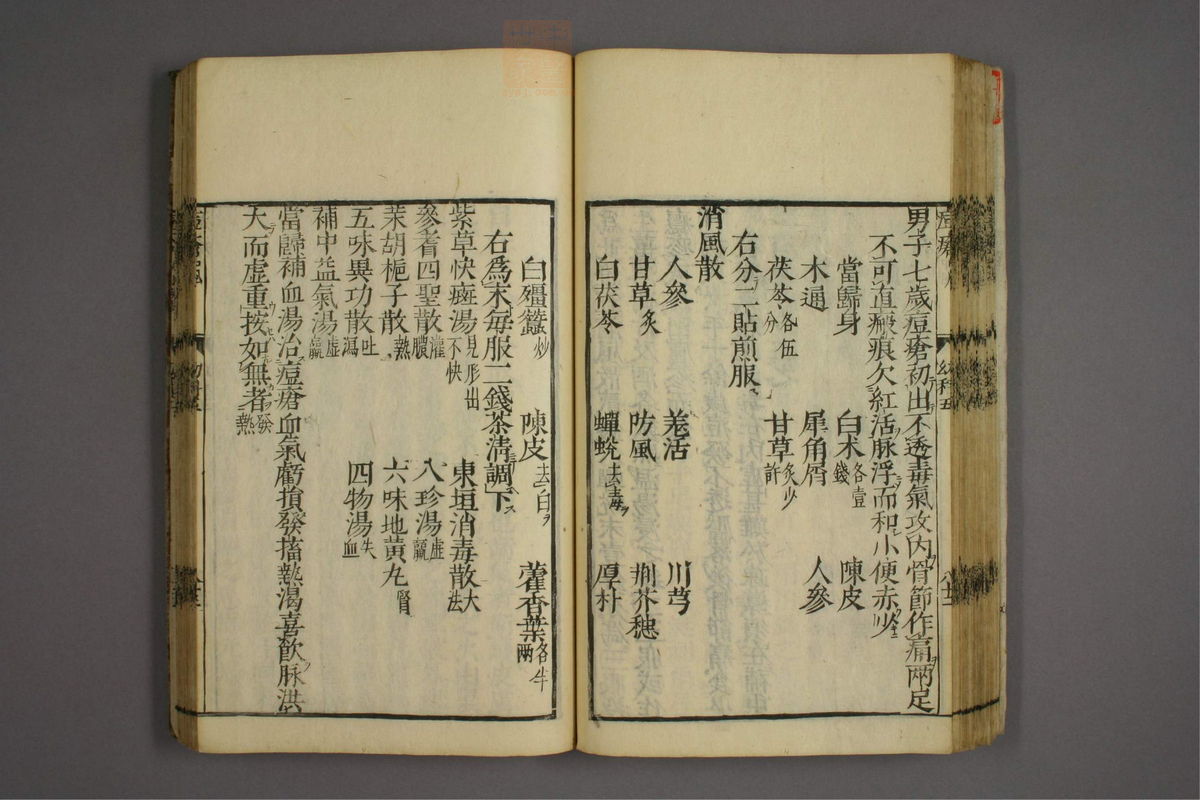 男子七歲痘瘡初出不透毒氣攻內骨節作痛兩足
不可直瘢痕欠紅活脉浮而和小便赤少
當歸身 白术各壹錢 陳皮
木通 犀角屑 人參
茯苓各伍分 甘草炙少許
右分二貼煎服
消風散
人參 羗活 川芎
甘草炙 防風 荆芥穗
白茯苓 蟬蛻去毒 厚朴
白殭蠶炒 陳皮去白 藿香葉各半兩
右為末每服二錢茶清調下
紫草快癍湯見形出不快 東垣消毒散大法
參耆四聖散灌膿 八珍湯虛羸
茉胡梔子散熱 六味地黃丸腎
五味異功散吐瀉 四物湯失血
補中益氣湯虛羸
當歸補血湯治痘瘡血氣虧損發搐熱渴喜飲脉洪
大而虛重按如無者發熱
幼科五